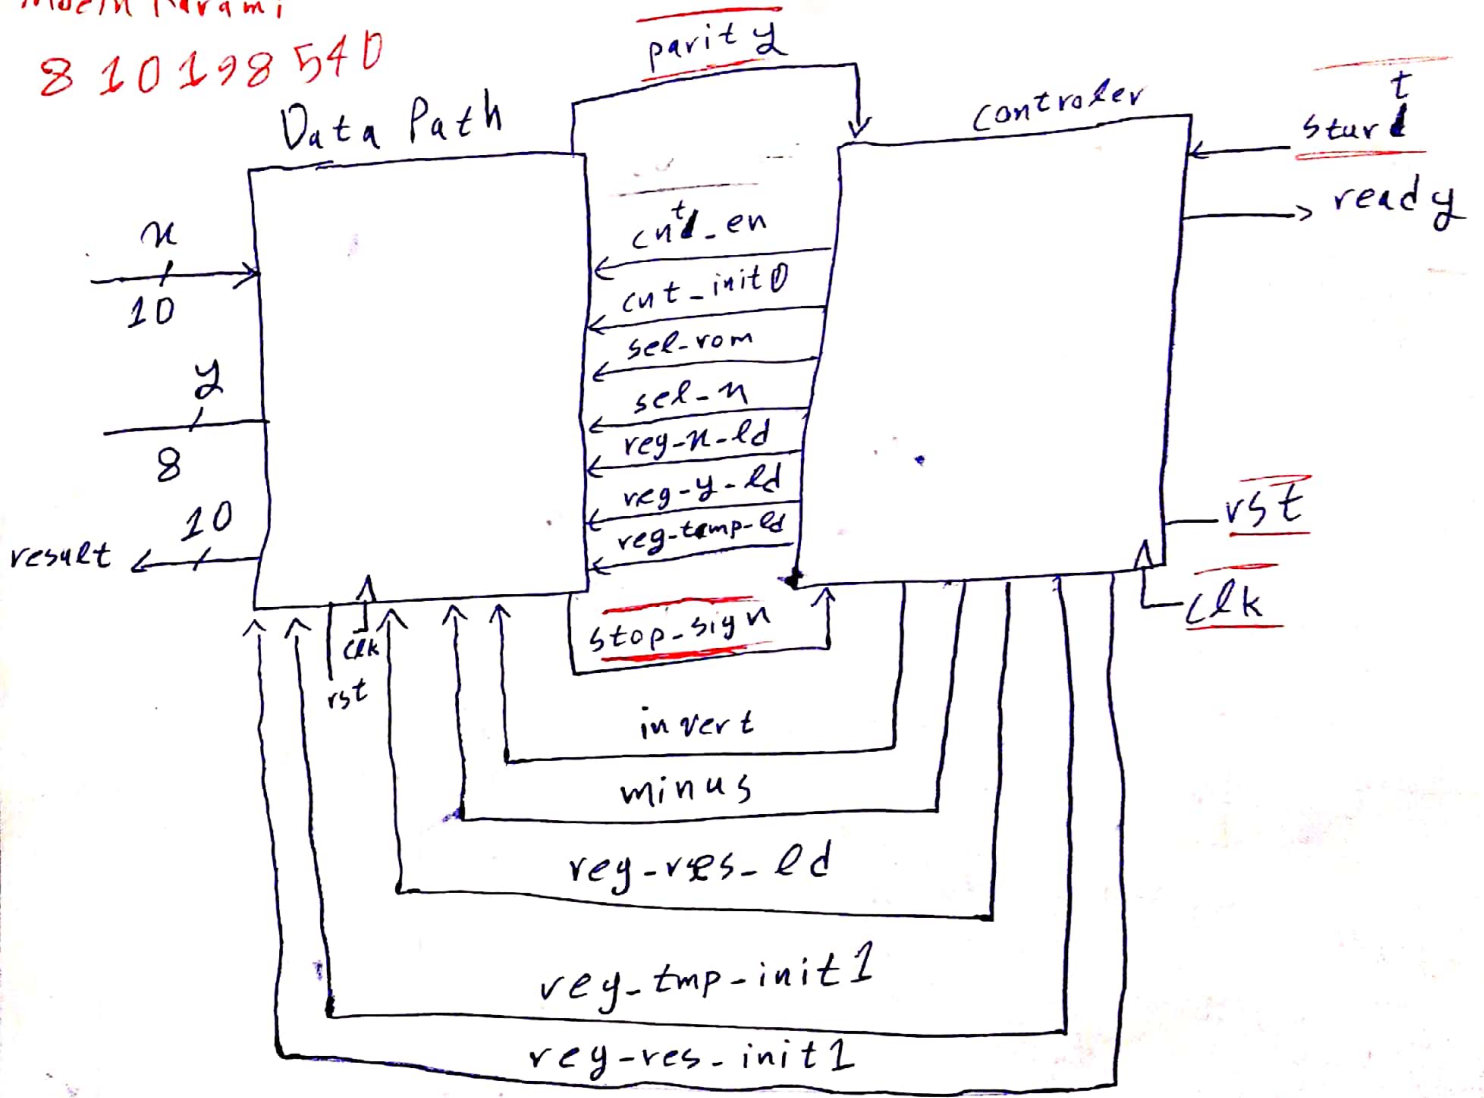 810198540
parity
Data Path
controler
start
ready
x
10
y
8
10
result
cnt_en
cnt_init0
sel-rom
sel-x
reg-x-ld
reg-y-ld
reg-temp-ld
rst
clk
clk
rst
stop-sign
invert
minus
reg-res-ld
reg-tmp-init1
reg-res-init1